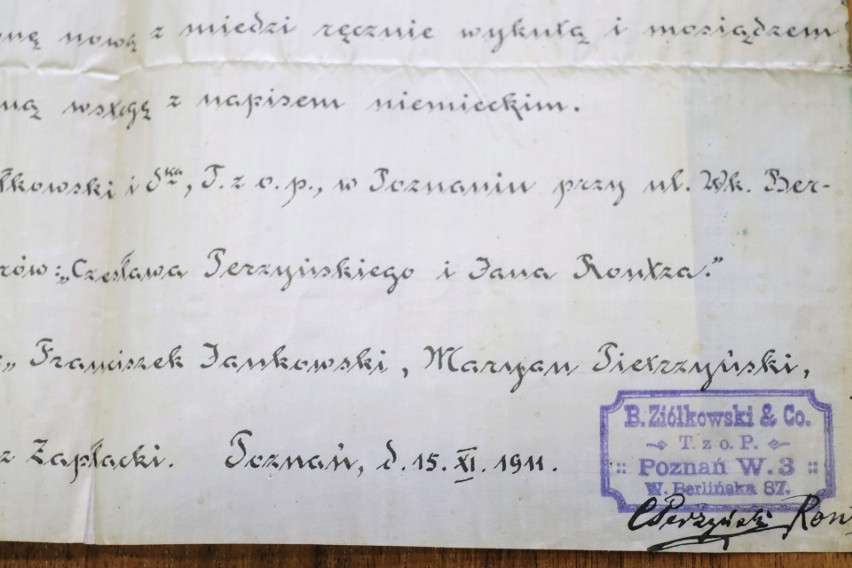 nową z miedzi ręcznie wykutą i mosiądzem
wstęgą z napisem niemieckim.
łkowski i Ska, T. z o. p., w Poznaniu przy ul. Wk. Ber-
rów: „Czesława Perzyńskiego i Jana Rontza."
Franciszek Jankowski, Maryan Pietrzyński,
z Zapłacki. Poznań, d. 15. XI. 1911.
B. Ziółkowski & Co.
T. z o. P.
:: Poznań W. 3 ::
W. Berlińska 87.
CPerzyński Ron